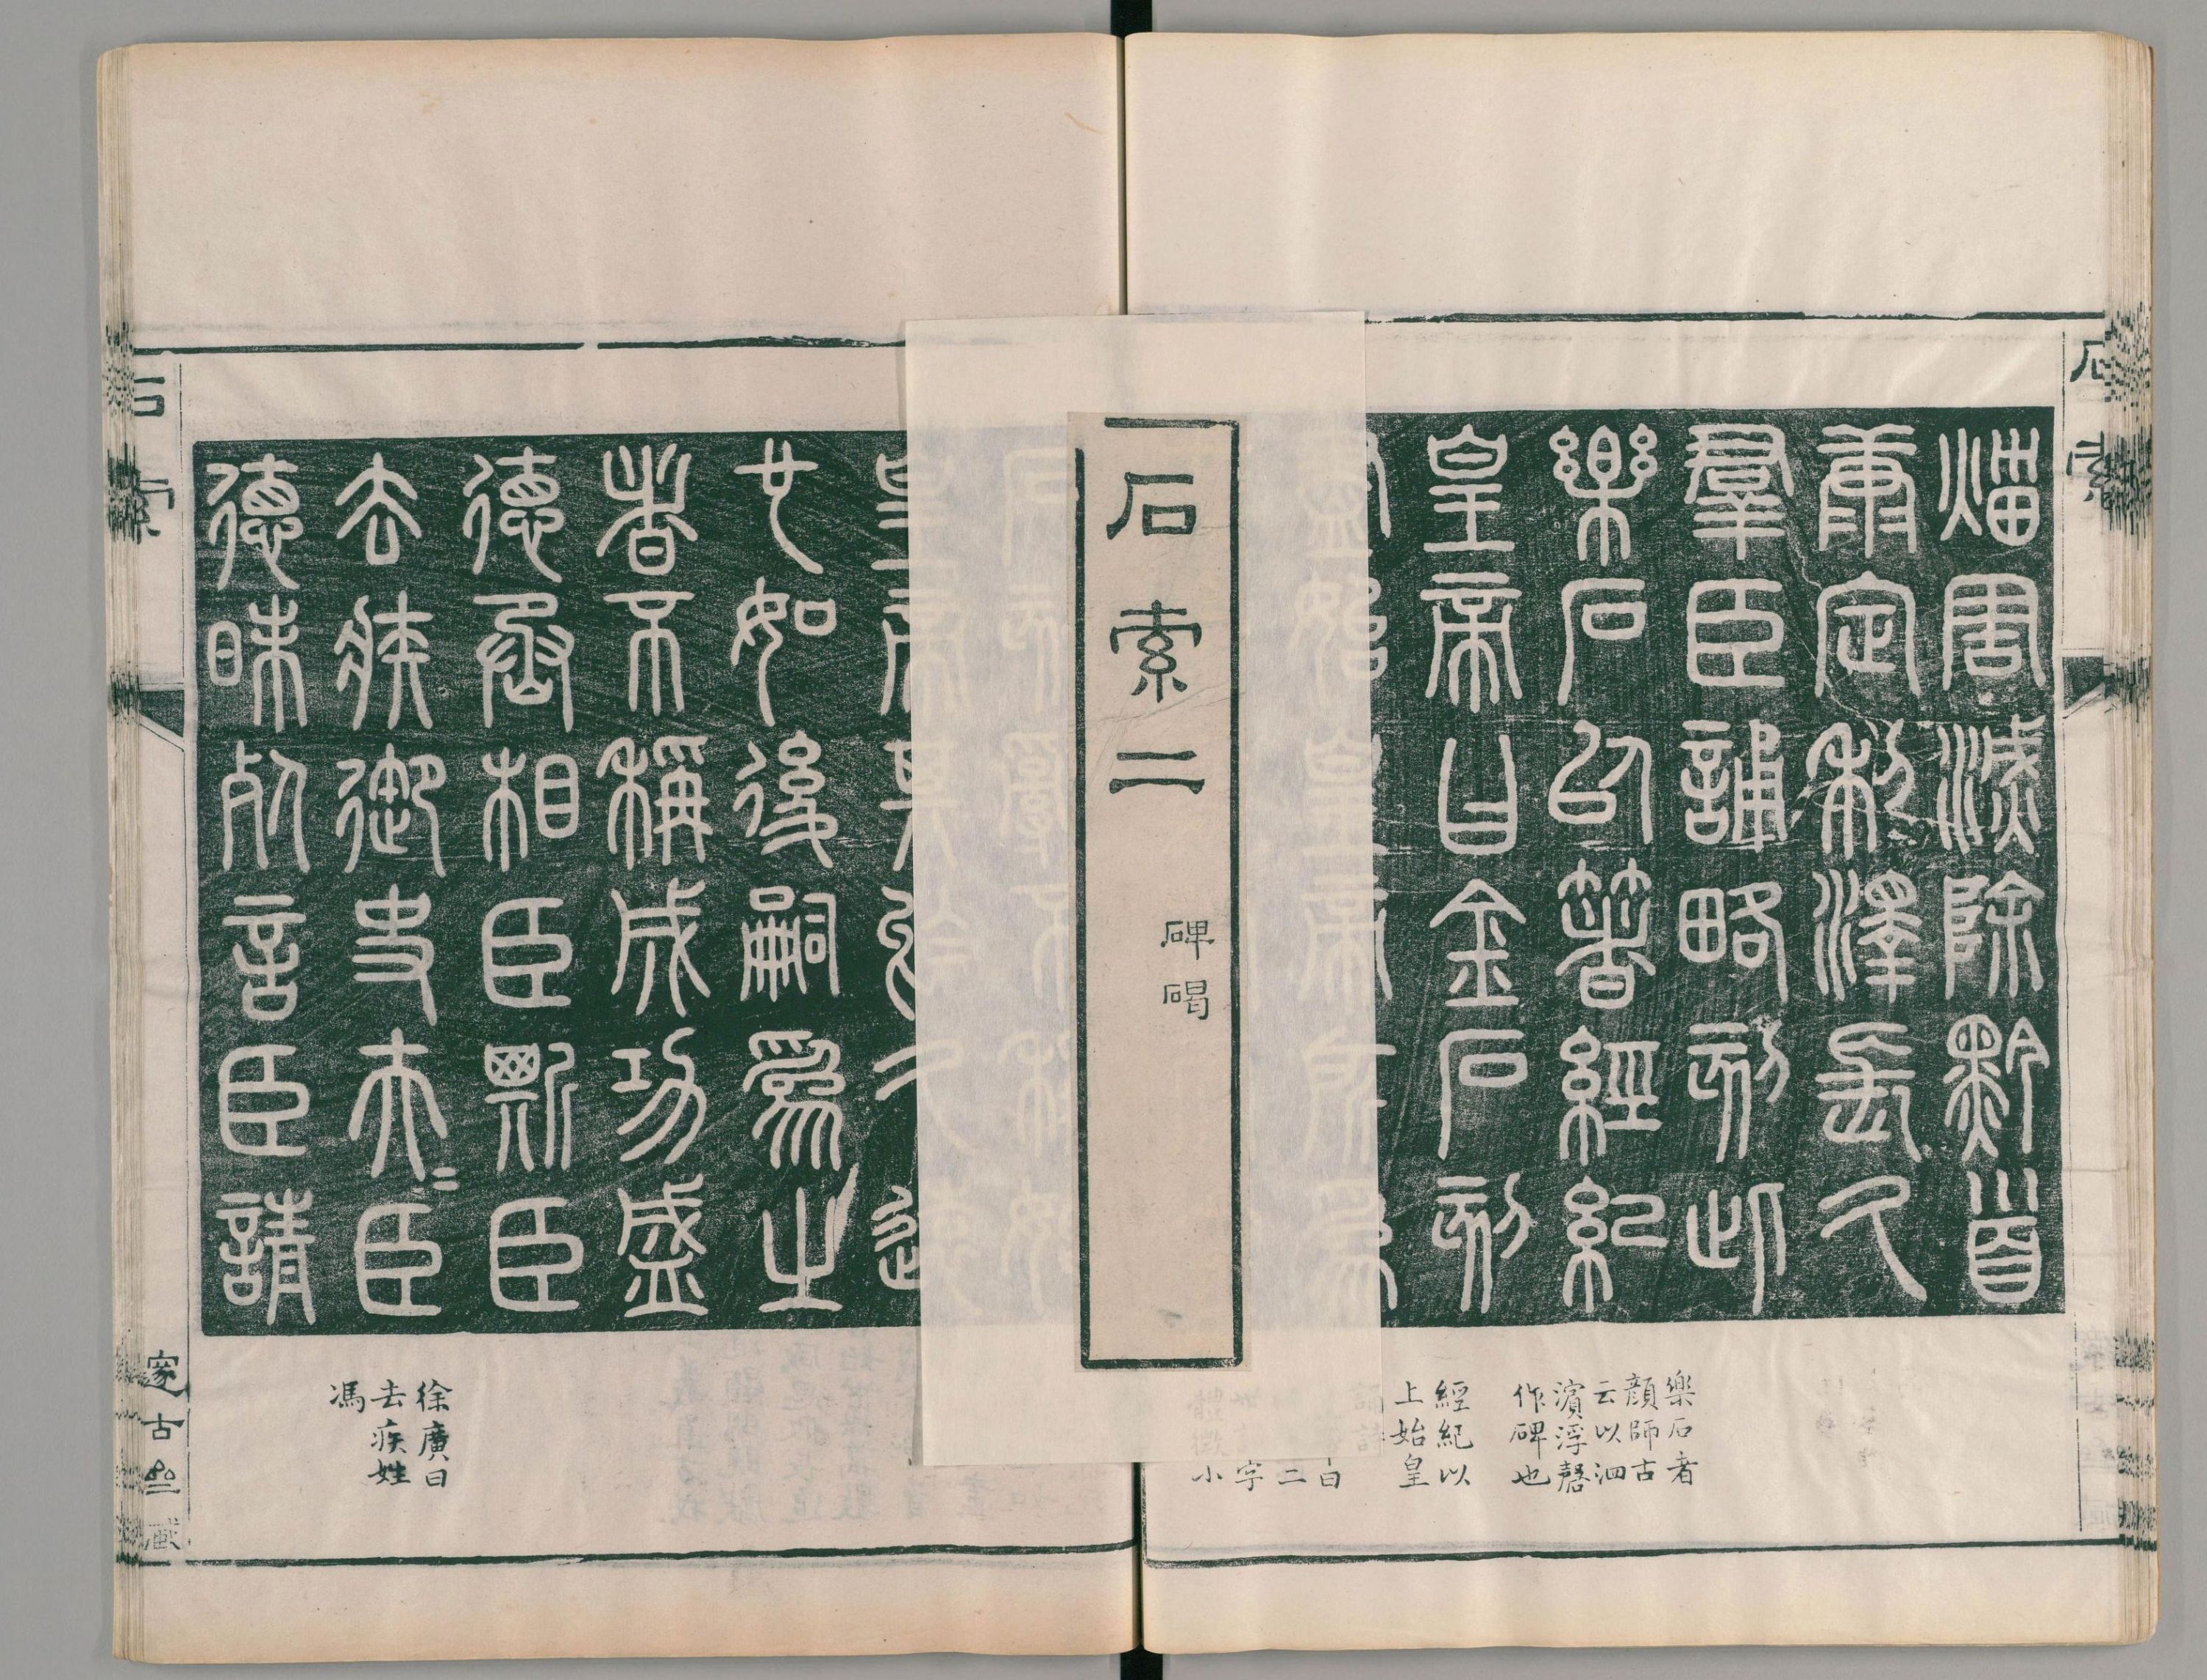 石索
𤉣害滅除黔首
康定利澤長久
羣臣誦略刻此
樂石以著經紀
皇帝曰金石刻
盡始皇帝所為
樂石者
顏師古
云以泗
濱浮磬
作碑也
經紀以
上始皇
石索二
碑碣
皇帝其於久遠
也如後嗣為之
者不稱成功盛
德丞相臣斯臣
去疾御史夫〻臣
德昧死言臣請
徐廣曰
去疾姓
馮
石索
邃古齋藏